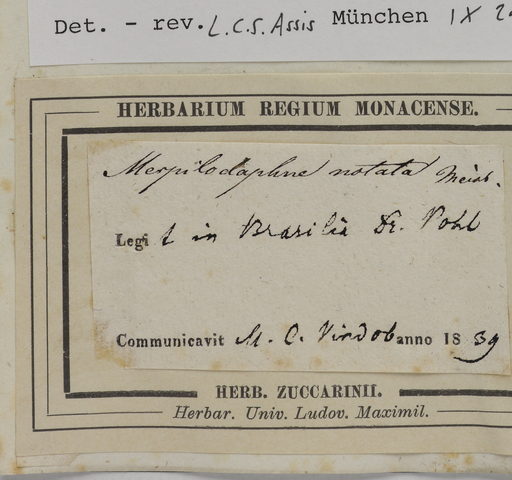 Det. - rev. L.C.S. Assis München IX
HERBARIUM REGIUM MONACENSE.
Mespilodaphne notata Meisn.
Legit in Brasilia Dr. Pohl
Communicavit M. C. Vindob anno 1839
HERB. ZUCCARINII.
Herbar. Univ. Ludov. Maximil.